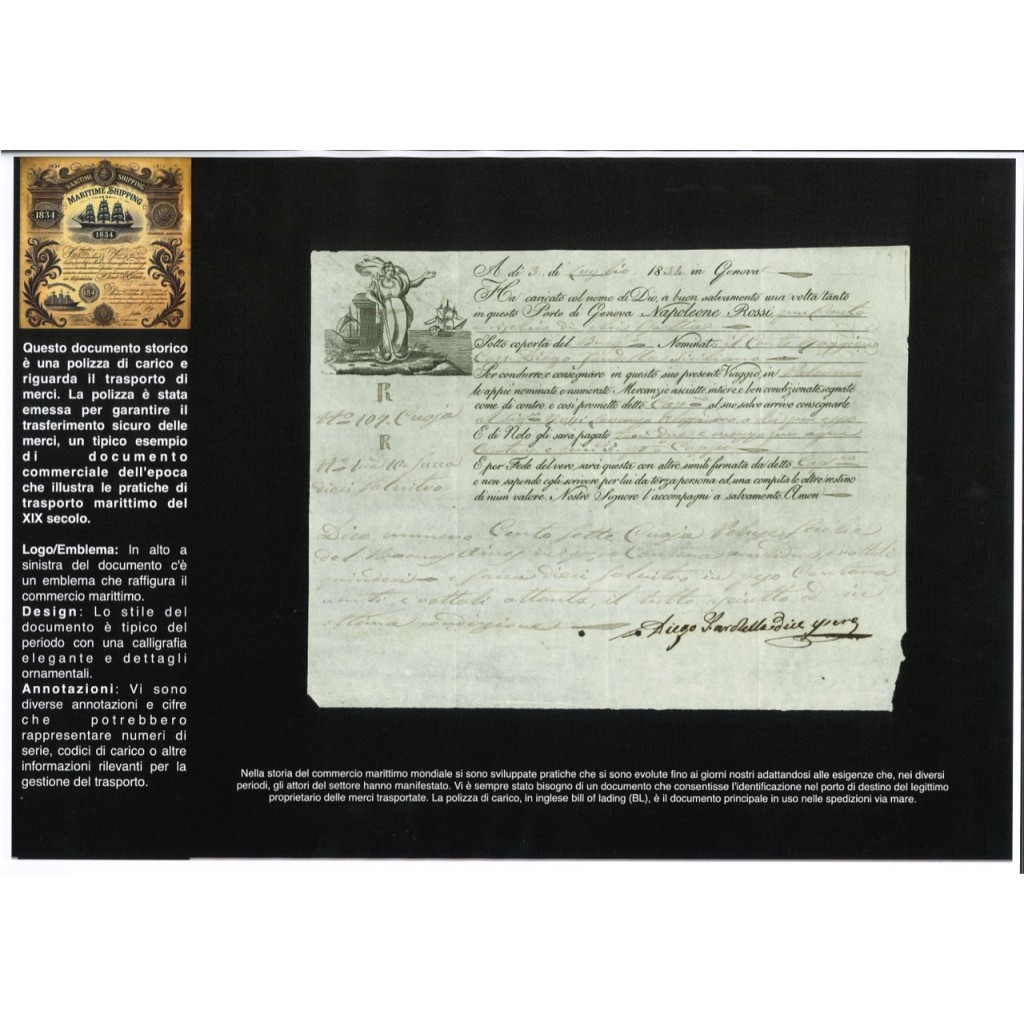 1834
MARITIME SHIPPING
MARITIME SHIPPING
1834
1834
Questo documento storico
è una polizza di carico e
riguarda il trasporto di
merci. La polizza è stata
emessa per garantire il
trasferimento sicuro delle
merci, un tipico esempio
di documento
commerciale dell'epoca
che illustra le pratiche di
trasporto marittimo del
XIX secolo.
Logo/Emblema: In alto a
sinistra del documento c'è
un emblema che raffigura il
commercio marittimo.
Design: Lo stile del
documento è tipico del
periodo con una calligrafia
elegante e dettagli
ornamentali.
Annotazioni: Vi sono
diverse annotazioni e cifre
che potrebbero
rappresentare numeri di
serie, codici di carico o altre
informazioni rilevanti per la
gestione del trasporto.
A di 3 di Luglio 1834 in Genova
Ha caricato col nome di Dio, a buon salvamento una volta tanto
in questo Porto di Genova Napoleone Rossi
Sotto coperta del Nominato il
Cap. Diego
Per condurre, e consegnare in questo suo presente Viaggio, in
le appiè nominate e numerate Mercanzie asciutte, intiere, e ben condizionate, segnate
come di contro, e così promette detto Cap.no al suo salvo arrivo consegnarle
E di Nolo gli sarà pagato
E per Fede del vero, sarà questa con altre simili firmata da detto
e non sapendo egli scrivere per lui da terza persona ed, una compita le altre restino
di niun valore. Nostro Signore l'accompagni a salvamento. Amen
R
N.o 107 Cuoja
R
dieci salnitro
Dico numero Cento sette Cuoja
del Buenos Aires
quindici e sacca dieci salnitro in peso Cantara
venti e rottoli ottanta, il tutto asciutto ed in
ottima condizione
Diego
Nella storia del commercio marittimo mondiale si sono sviluppate pratiche che si sono evolute fino ai giorni nostri adattandosi alle esigenze che, nei diversi
periodi, gli attori del settore hanno manifestato. Vi è sempre stato bisogno di un documento che consentisse l'identificazione nel porto di destino del legittimo
proprietario delle merci trasportate. La polizza di carico, in inglese bill of lading (BL), è il documento principale in uso nelle spedizioni via mare.